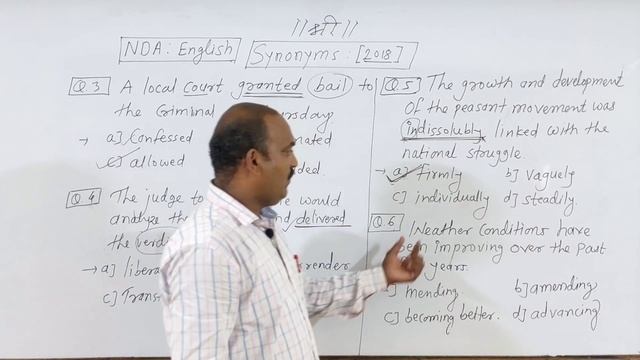 ||श्री||
NDA: English
Synonyms: [2018]
Q 3 A local court granted bail to
the Criminal
→ a] Confessed
c] allowed
Q 4 The judge to would
analyze the delivered
the
→ a]
c]
Q 5 The growth and development
of the peasant movement was
indissolubly linked with the
national struggle.
→ a] firmly b] vaguely
c] individually d] steadily.
Q 6 Weather conditions have
improving over the past
years.
mending b] amending
c] becoming better. d] advancing